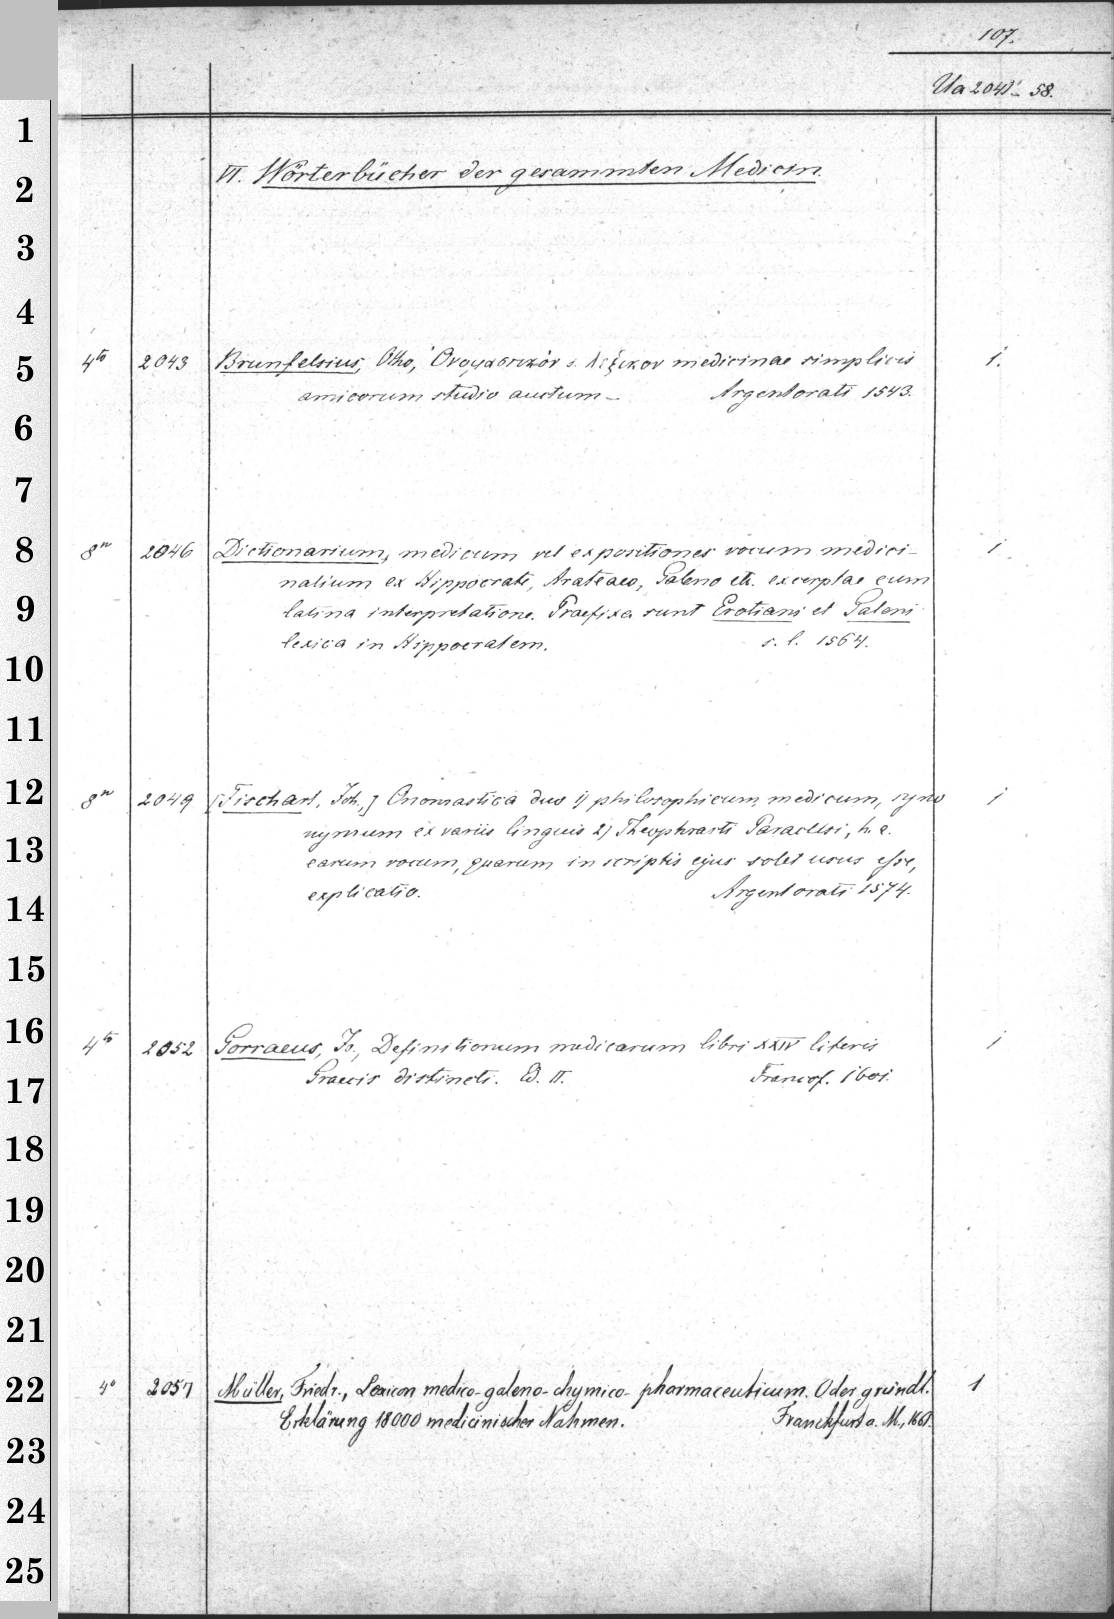 107.
Ua 2041 - 58.
VI. Wörterbücher der gesammten Medicin.
4to 2043 Brunfelsius, Otho, Ονομαστικόν s. λεξικον medicinae simplicis 1.
amicorum studio auctum – Argentorati 1543.
8vo 2046 Dictionarium, medicum vel expositiones vocum medici- 1
nalium ex Hippocrate, Arateaeo, Galeno etc. excerptae cum
latina interpretatione. Praefixa sunt Erotiani et Galeni
lexica in Hippocratem. s. l. 1564.
8vo 2049 [Fischart, Joh.,] Onomastica duo 1) philosophicum medicum, syno 1
nymum ex variis linguis 2) Theophrasti Paracelsi, h. e.
earum vocum, quarum in scriptis ejus solet usus esse,
explicatio. Argentorati 1574.
4to 2052 Gorraeus, Jo., Definitionum medicarum libri XXIV literis 1
Graecis distincti. Ed. II. Francof. 1601.
4° 2057 Müller, Friedr., Lexicon medico-galeno-chymico-pharmaceuticum. Oder gründl. 1
Erklärung 18000 medicinischer Nahmen. Franckfurt a. M., 1661.
1
2
3
4
5
6
7
8
9
10
11
12
13
14
15
16
17
18
19
20
21
22
23
24
25